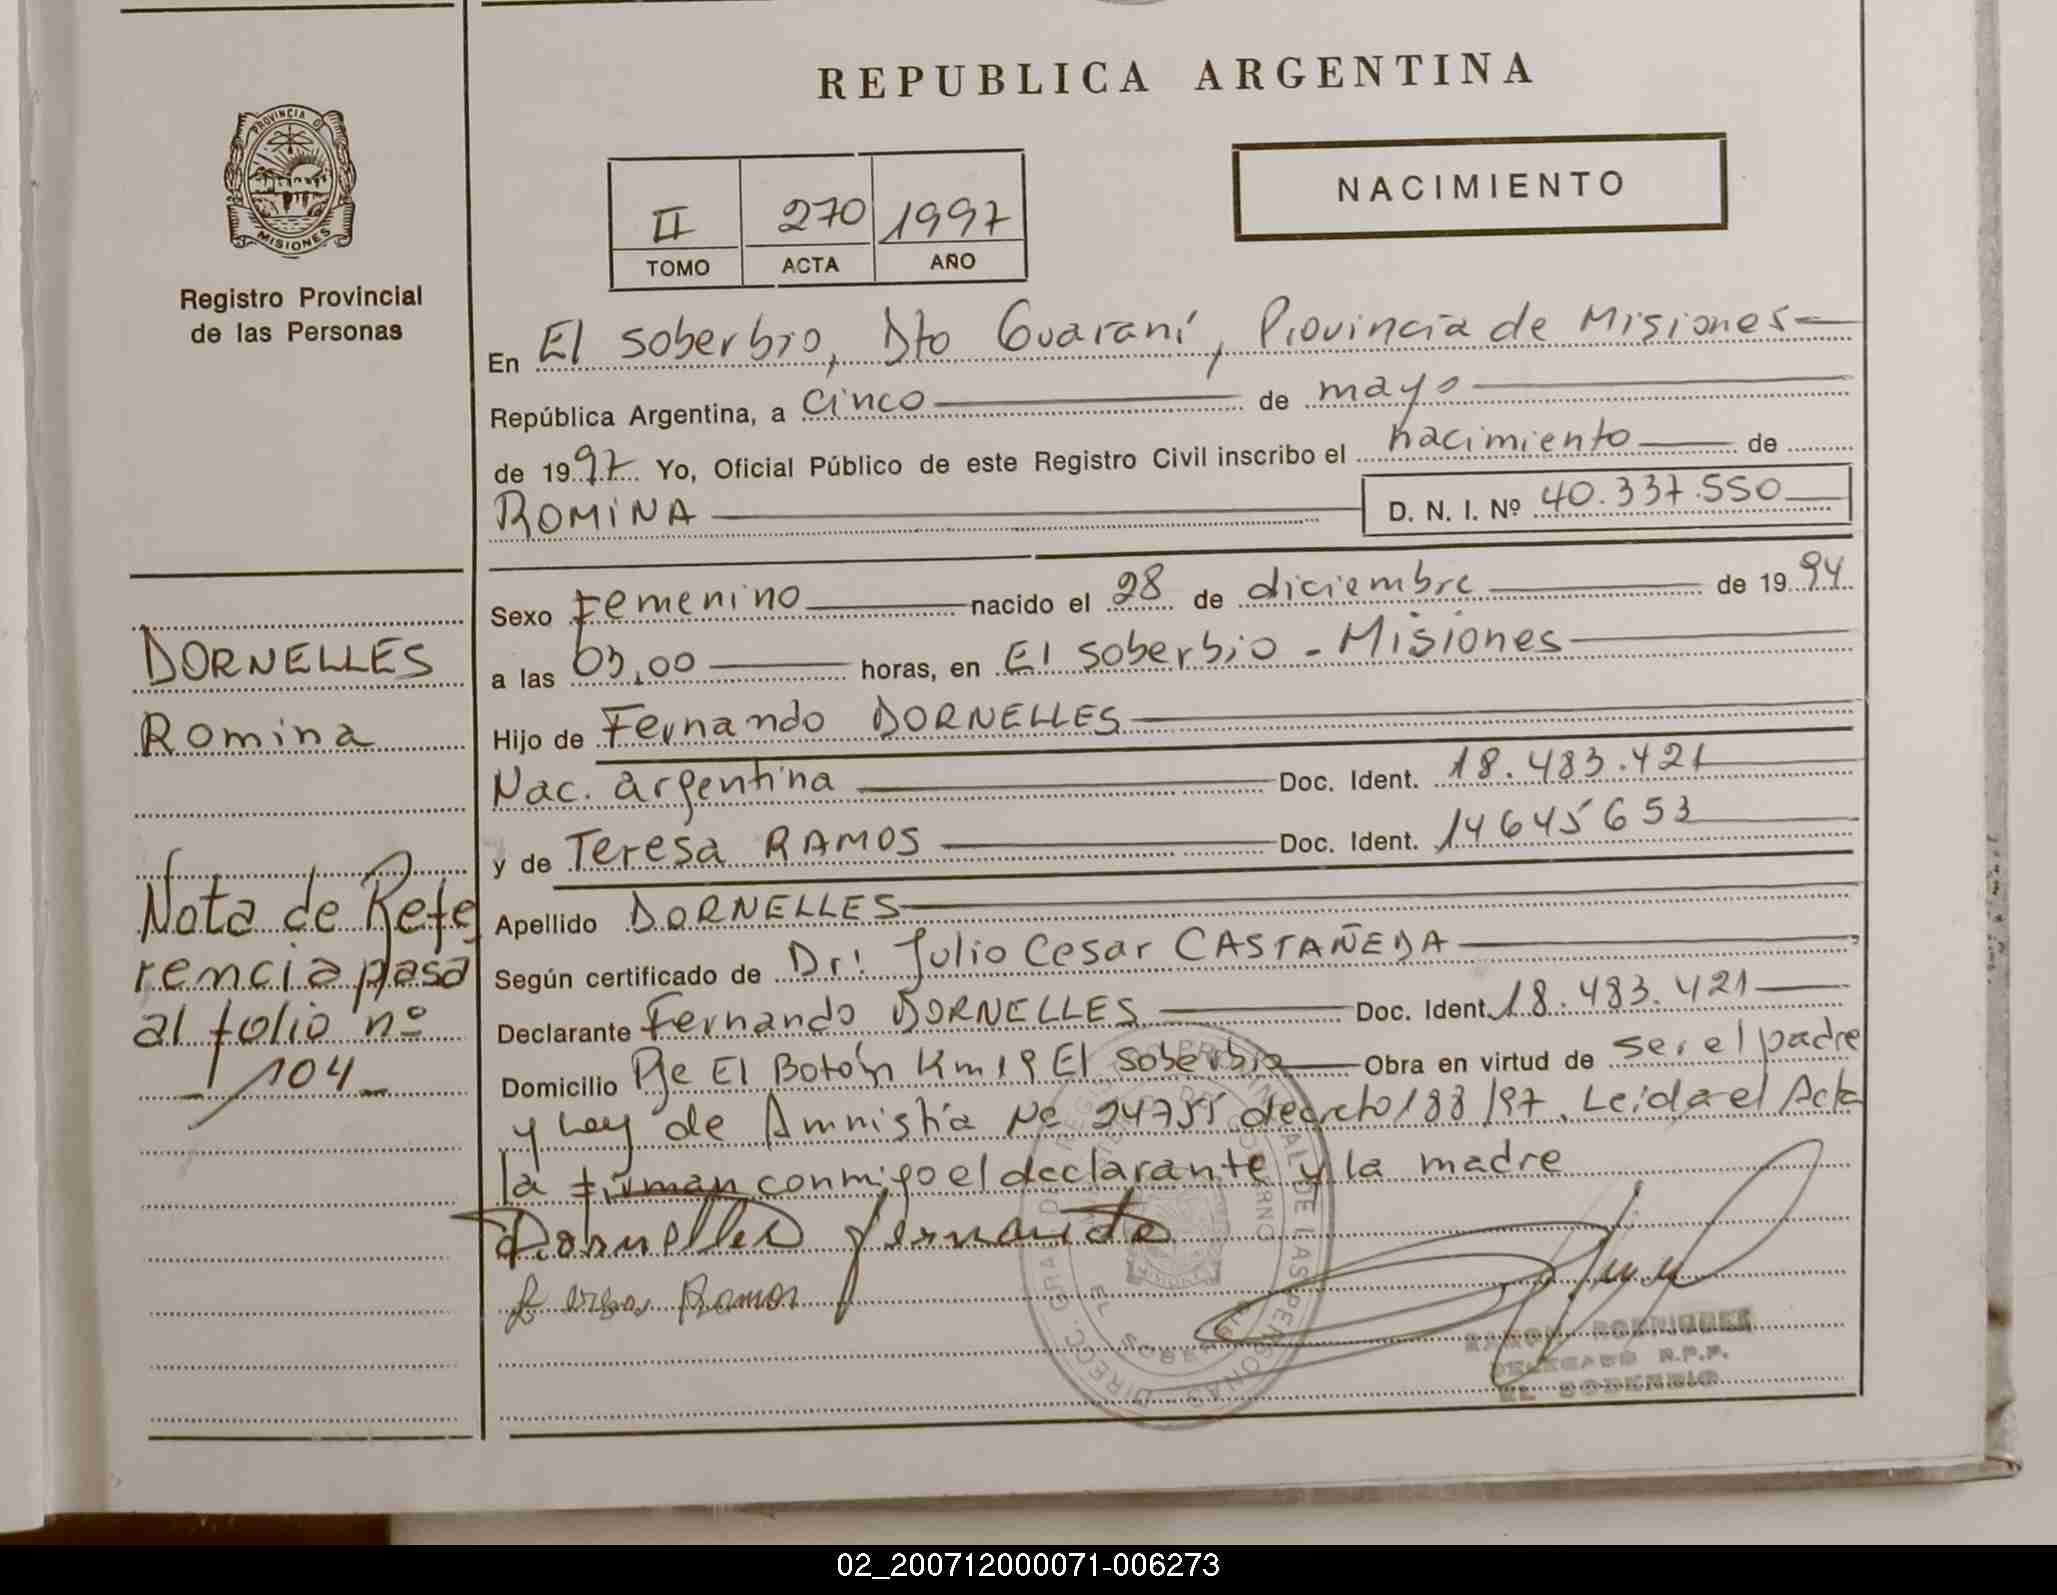 REPUBLICA ARGENTINA
PROVINCIA D
MISIONES
Registro Provincial
de las Personas
NACIMIENTO
II 270 1997
TOMO ACTA AÑO
En El Soberbio, Dto Guaraní, Provincia de Misiones
República Argentina, a cinco de mayo
de 1997 Yo, Oficial Público de este Registro Civil inscribo el nacimiento de
ROMINA D. N. I. Nº 40.337.550
Sexo Femenino nacido el 28 de diciembre de 1994
a las 03,00 horas, en El Soberbio - Misiones
Hijo de Fernando DORNELLES
Nac. argentina Doc. Ident. 18.483.421
y de Teresa RAMOS Doc. Ident. 14645653
Apellido DORNELLES
Según certificado de Dr: Julio Cesar CASTAÑEDA
Declarante Fernando DORNELLES Doc. Ident. 18.483.421
Domicilio Pje El Botón Km 19 El Soberbio Obra en virtud de ser el padre
y Ley de Amnistía Nº 24755 decreto 188/97. Leida el Acta
la firman conmigo el declarante y la madre
Dornelles Fernando
Teresa Ramos
DORNELLES
Romina
Nota de Refe
rencia pasa
al folio nº
104
DIRECC. GRAL REGISTRO PROVINCIAL DE LAS PERSONAS
EL SOBERBIO
RAMON RODRIGUEZ
DELEGADO R.P.P.
EL SOBERBIO
02_200712000071-006273